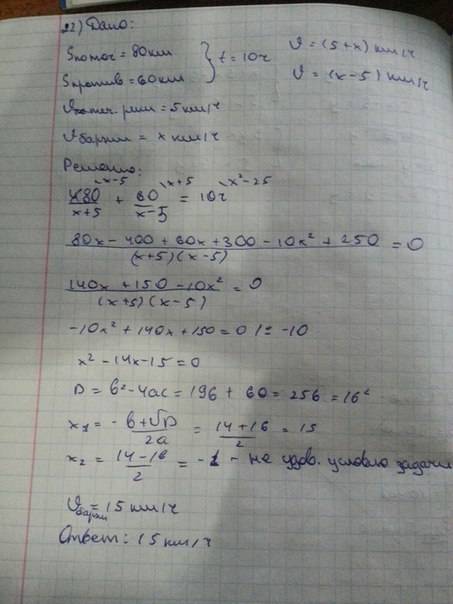 22) Дано:
Sпо теч = 80 км } t = 10ч
V = (5+x) км/ч
Sпротив = 60 км
V = (x-5) км/ч
Vтеч. реки = 5 км/ч
Vбаржи = x км/ч
Решение:
80/(x+5) \x-5 + 60/(x-5) \x+5 = 10ч \x²-25
(80x - 400 + 60x + 300 - 10x² + 250)/((x+5)(x-5)) = 0
(140x + 150 - 10x²)/((x+5)(x-5)) = 0
-10x² + 140x + 150 = 0 |: -10
x² - 14x - 15 = 0
D = b² - 4ac = 196 + 60 = 256 = 16²
x1 = (-b+√D)/2a = (14+16)/2 = 15
x2 = (14-16)/2 = -1 - не удов. условию задачи
Vбаржи = 15 км/ч
Ответ: 15 км/ч